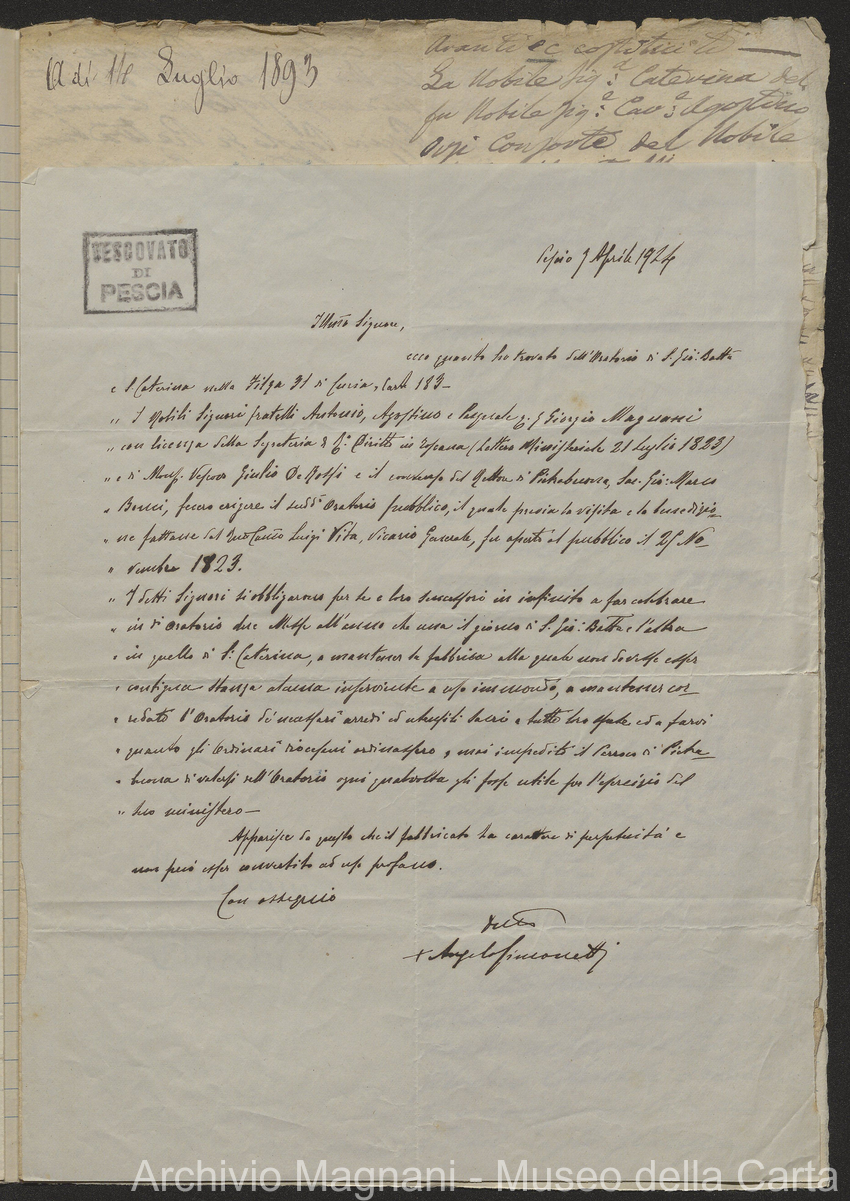 A dì 14 Luglio 1893
Avanti ec costituiti —
La Nobile Sig.ª Caterina del
fu Nobile Sig.ʳ Cav.ʳ Agostino
oggi Consorte del Nobile
VESCOVATO
DI
PESCIA
Pescia 7 Aprile 1924
Ill.mo Signore,
ecco quanto ho trovato dell'Oratorio di S. Gio: Batta
e S. Caterina nella Filza 31 di Curia, Carta 183 —
„ I Nobili Signori fratelli Antonio, Agostino e Pasquale q. Giorgio Magnani
„ con licenza della Segreteria del R.º Diritto in Toscana (Lettera Ministeriale 21 luglio 1823)
„ e di Mons. Vescovo Giulio De Rossi e il consenso del Rettore di Pietrabuona, Sac. Gio: Marco
„ Bonci, fecero erigere il sudd.º Oratorio pubblico, il quale previa la visita e la benedizio-
„ ne fattane dal Can.co Luigi Vita, Vicario Generale, fu aperto al pubblico il 25 No-
„ vembre 1823.
„ I detti Signori si obbligarono per se e loro successori in infinito a far celebrare
„ in d.º Oratorio due Messe all'anno che una il giorno di S. Gio: Batta e l'altra
„ in quello di S. Caterina, a mantener la fabbrica alla quale non dovesse esser
„ contigua stanza alcuna inserviente a uso immondo, a mantener cor-
„ redato l'Oratorio de' necessari arredi ed utensili sacri a tutte loro spese ed a farvi
„ quanto gli Ordinari diocesani ordinassero, e mai impedito il Parroco di Pietra-
„ buona di valersi dell'Oratorio ogni qualvolta gli fosse utile per l'esercizio del
„ suo ministero —
Apparisce da questo che il fabbricato ha carattere di perpetuità e
non può esser convertito ad uso profano.
Con ossequio
Dev.mo
+ Angelo Simonetti
Archivio Magnani - Museo della Carta